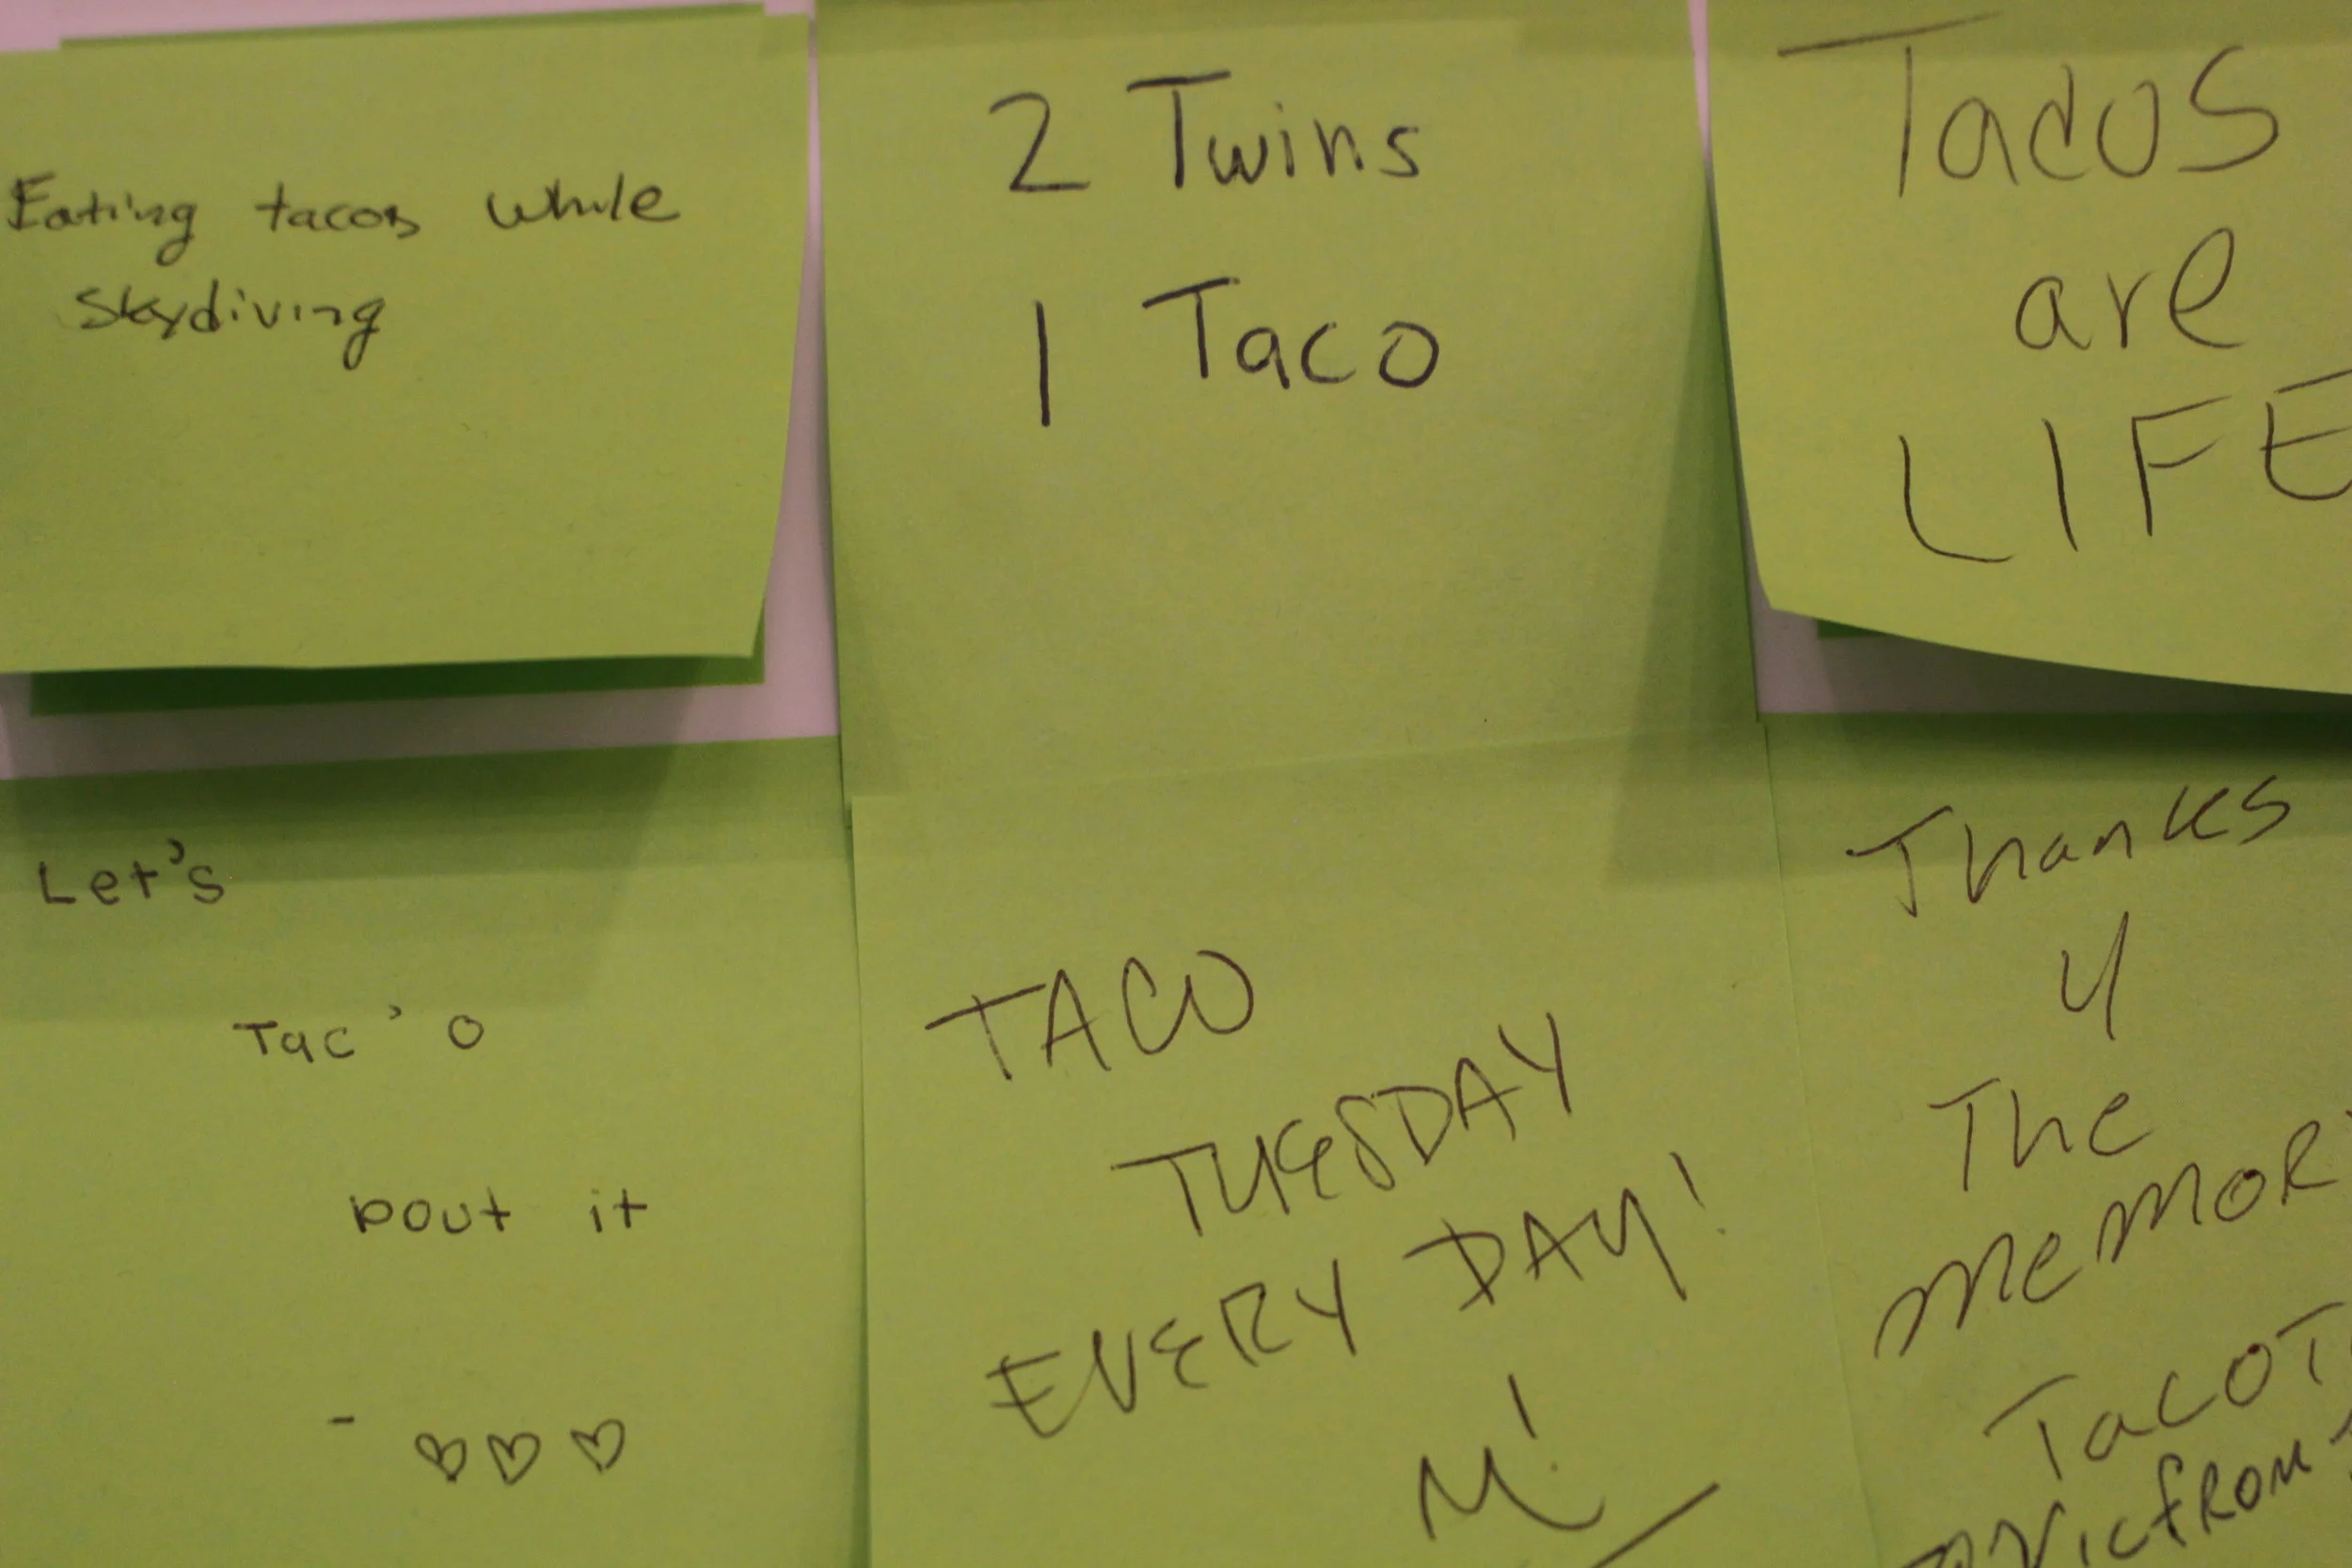 Eating tacos while
skydiving
2 Twins
1 Taco
Tacos
are
LIFE
Let's
Tac'o
bout it
- ♡♡♡
TACO
TUESDAY
EVERY DAY!
Thanks
4
The
memor
TacoT
from